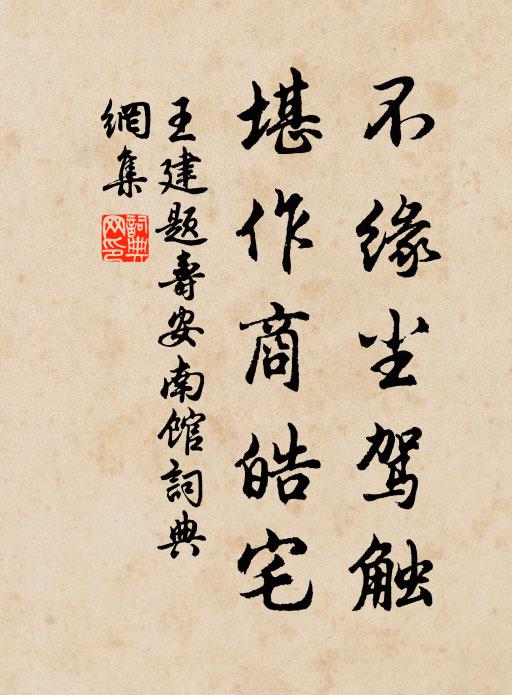 不缘尘驾触
堪作商皓宅
王建题壽安南馆詞典
網集
詞典
网印